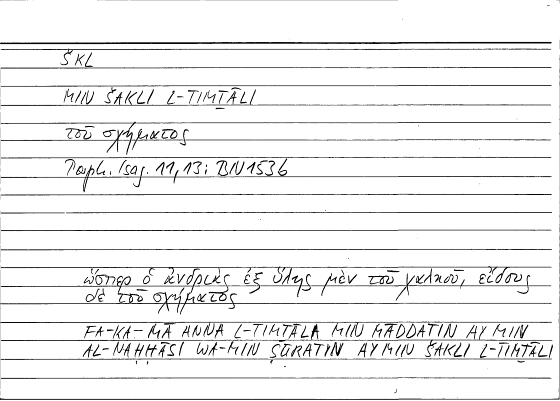 ŠKL
MIN ŠAKLI L-TIMṮĀLI
τοῦ σχήματος
Porph. Isag. 11,13; BN 153b
ὥσπερ ὁ ἀνδριὰς ἐξ ὕλης μὲν τοῦ χαλκοῦ, εἴδους
δὲ τοῦ σχήματος
FA-KA-MĀ ANNA L-TIMṮĀLA MIN MĀDDATIN AY MIN
AL-NAḤḤĀSI WA-MIN ṢŪRATIN AY MIN ŠAKLI L-TIMṮĀLI